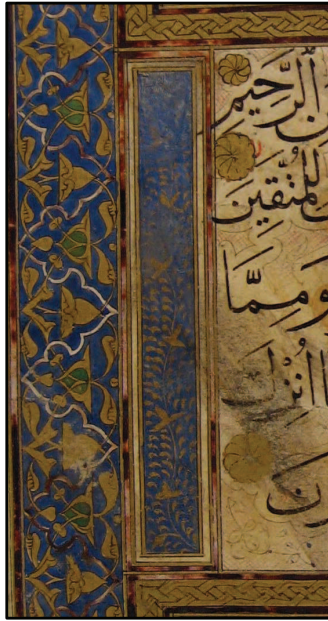 الرَّحِيمِ
لِلْمُتَّقِينَ
وَمِمَّا
اُنْزِلَ